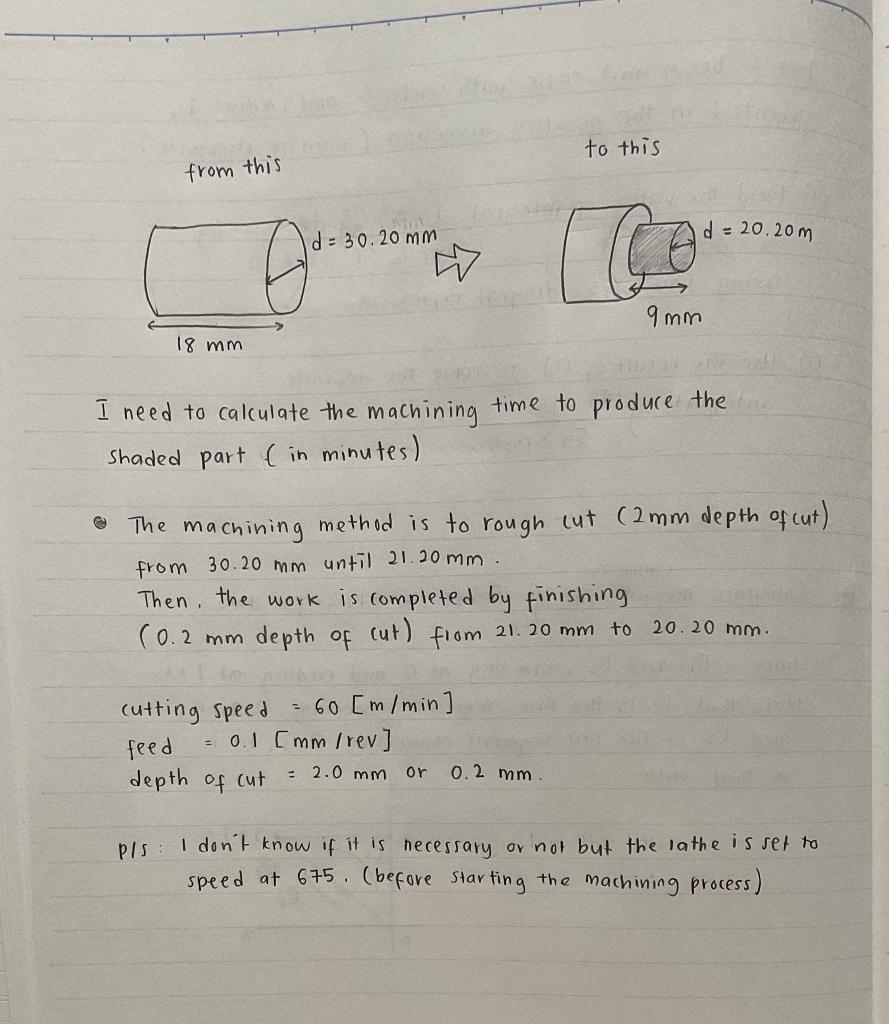 from this
to this
d = 30.20 mm
d = 20.20 m
18 mm
9 mm
I need to calculate the machining time to produce the
shaded part (in minutes)
The machining method is to rough cut (2mm depth of cut)
from 30.20 mm until 21.20 mm.
Then, the work is completed by finishing
(0.2 mm depth of cut) from 21.20 mm to 20.20 mm.
cutting speed = 60 [m/min]
feed = 0.1 [mm/rev]
depth of cut = 2.0 mm or 0.2 mm.
p/s: I don't know if it is necessary or not but the lathe is set to
speed at 675. (before starting the machining process)